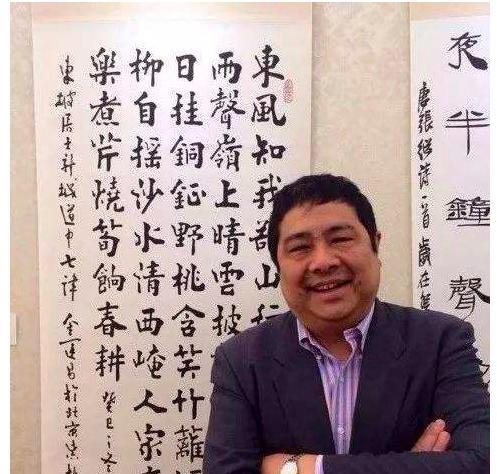 夜半鐘聲
唐張繼詩一首歲在
東風知我欲山行
雨聲嶺上晴雲披
日挂銅鉦野桃含笑竹籬
柳自搖沙水清西崦人家
樂煮芹燒筍餉春耕 癸巳之冬
東坡居士新城道中七律 金運昌於北京